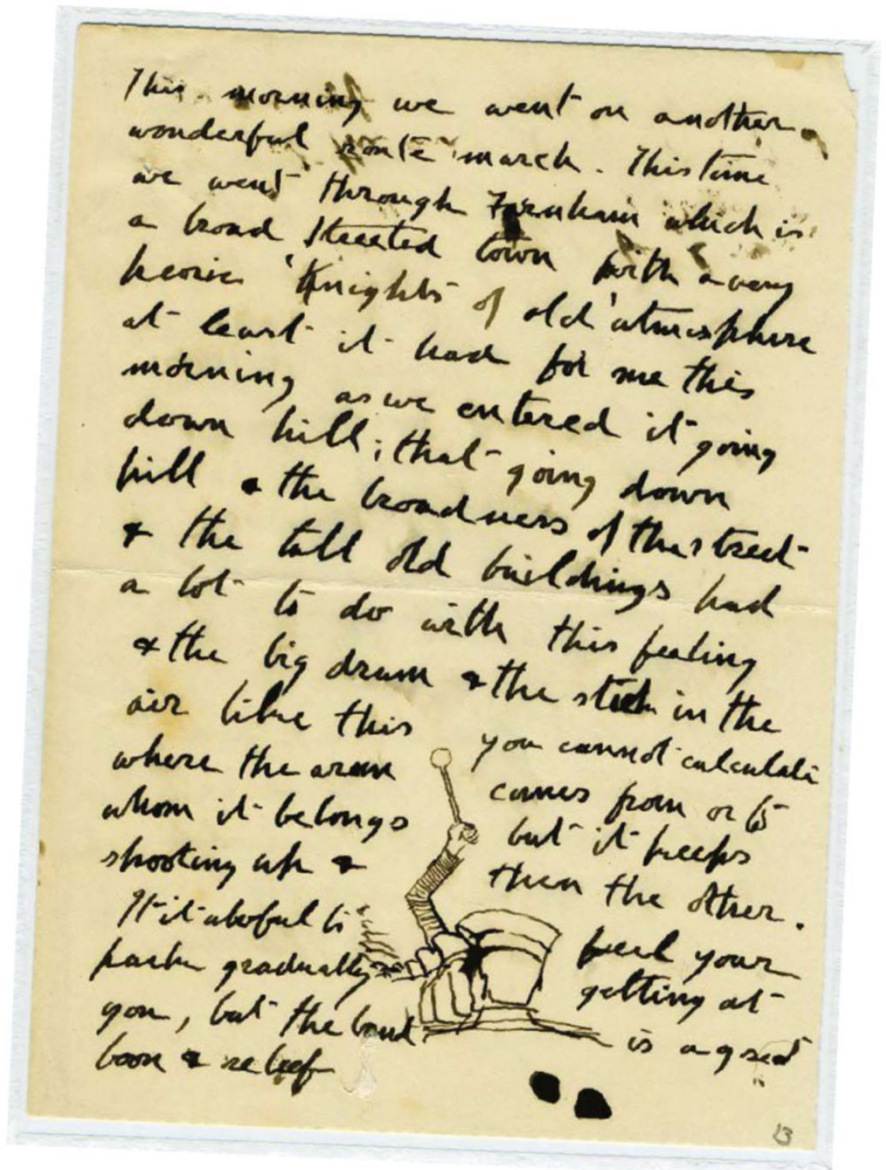 This morning we went on another
wonderful route march. This time
we went through Farnham which is
a broad streeted town with a very
heroic 'Knights of old' atmosphere
at least it had for me this
morning as we entered it going
down hill; that going down
hill & the broadness of the street
& the tall old buildings had
a lot to do with this feeling
& the big drum & the stick in the
air like this you cannot calculate
where the arm comes from or to
whom it belongs but it keeps
shooting up & then the other.
It it aboful to feel your
pack gradually getting at
you, but the band is a great
boon & releef
23